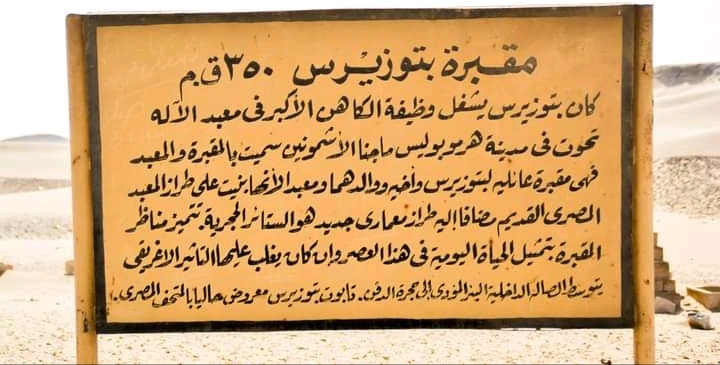 مقبرة بتوزيرس ٣٥٠ ق.م
كان بتوزيرس يشغل وظيفة الكاهن الأكبر فى معبد الآله
تحوت فى مدينة هرموبوليس ماجنا الأشمونين سميت بالمقبرة والمعبد
فهى مقبرة عائليه لبتوزيرس وأخيه ووالدهما ومعبد لأنها بنيت على طراز المعبد
المصرى القديم مضافا إليه طراز معمارى جديد هو الستائر الحجرية. تتميز مناظر
المقبرة بتمثيل الحياة اليومية فى هذا العصر وإن كان يغلب عليها التأثير الاغريقى
يتوسط الصالة الداخلية البئر المؤدى إلى حجرة الدفن. تابوت بتوزيرس معروض حاليا بالمتحف المصرى.